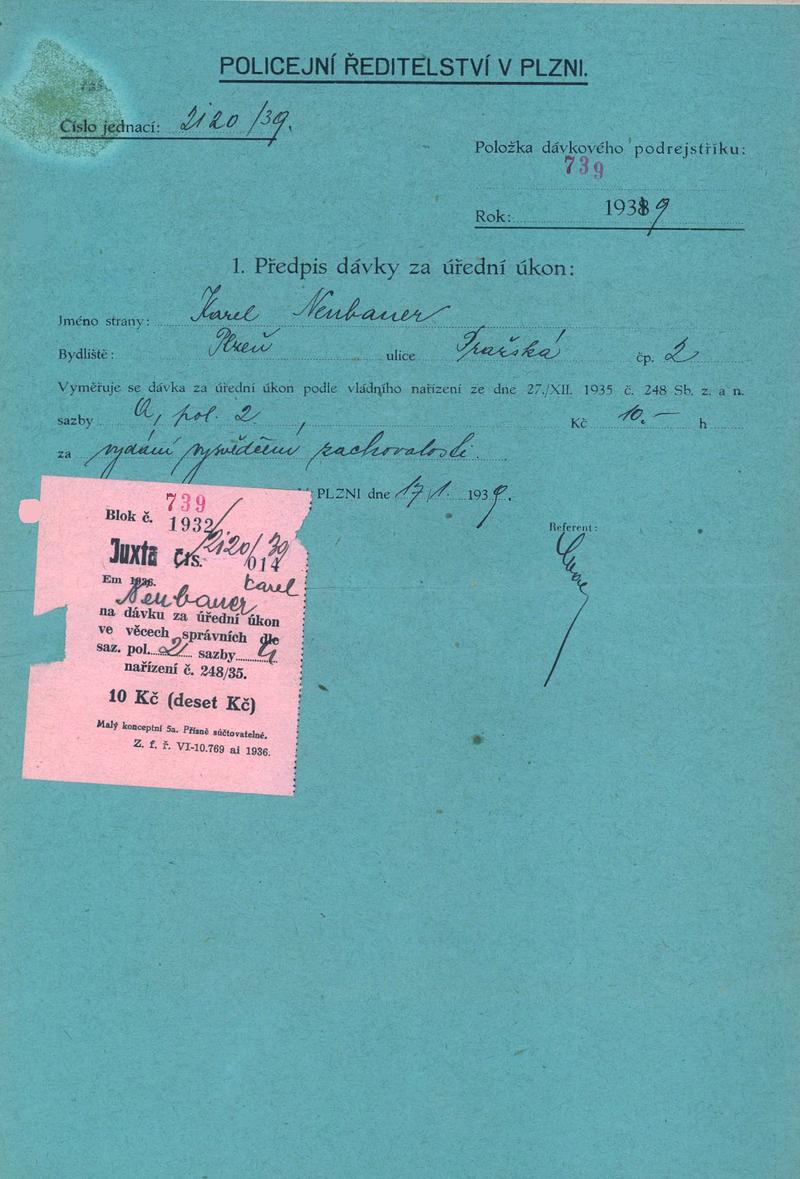 POLICEJNÍ ŘEDITELSTVÍ V PLZNI.
Číslo jednací: 2120/39.
Položka dávkového podrejstříku:
739
Rok: 1939
1. Předpis dávky za úřední úkon:
Jméno strany: Karel Neubauer
Bydliště: Plzeň ulice Pražská čp. 2
Vyměřuje se dávka za úřední úkon podle vládního nařízení ze dne 27./XII. 1935 č. 248 Sb. z. a n.
sazby A, pol. 2, Kč 10.- h
za vydání vysvědčení zachovalosti.
V PLZNI dne 17/1. 1939.
Referent:
739
Blok č. 1932
2120/39
Juxta čís. 014
Em 1936. Karel
Neubauer
na dávku za úřední úkon
ve věcech správních dle
saz. pol. 2 sazby A
nařízení č. 248/35.
10 Kč (deset Kč)
Malý konceptní 5a. Přísně súčtovatelné.
Z. f. ř. VI-10.769 ai 1936.